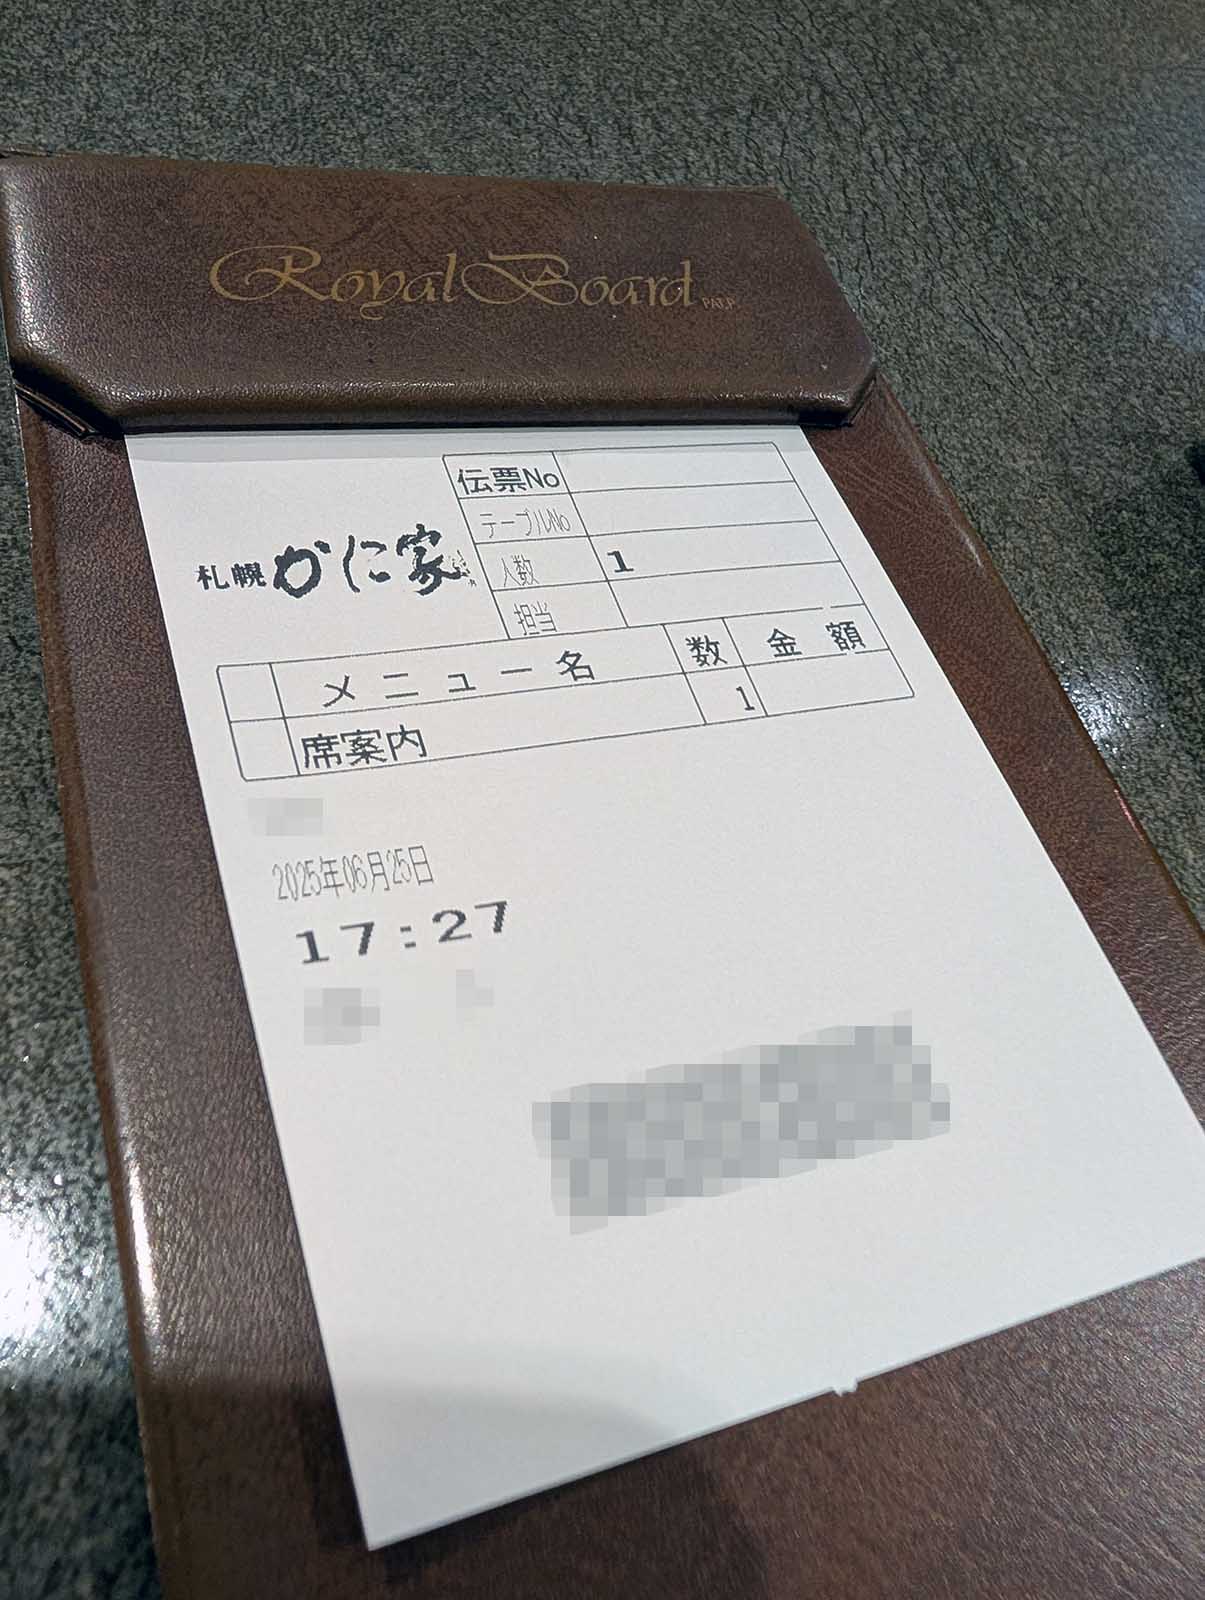 Royal Board PAT.P.
伝票No
テーブルNo
人数 1
担当
札幌 かに家
メニュー名 数 金額
席案内 1
2025年06月25日
17:27